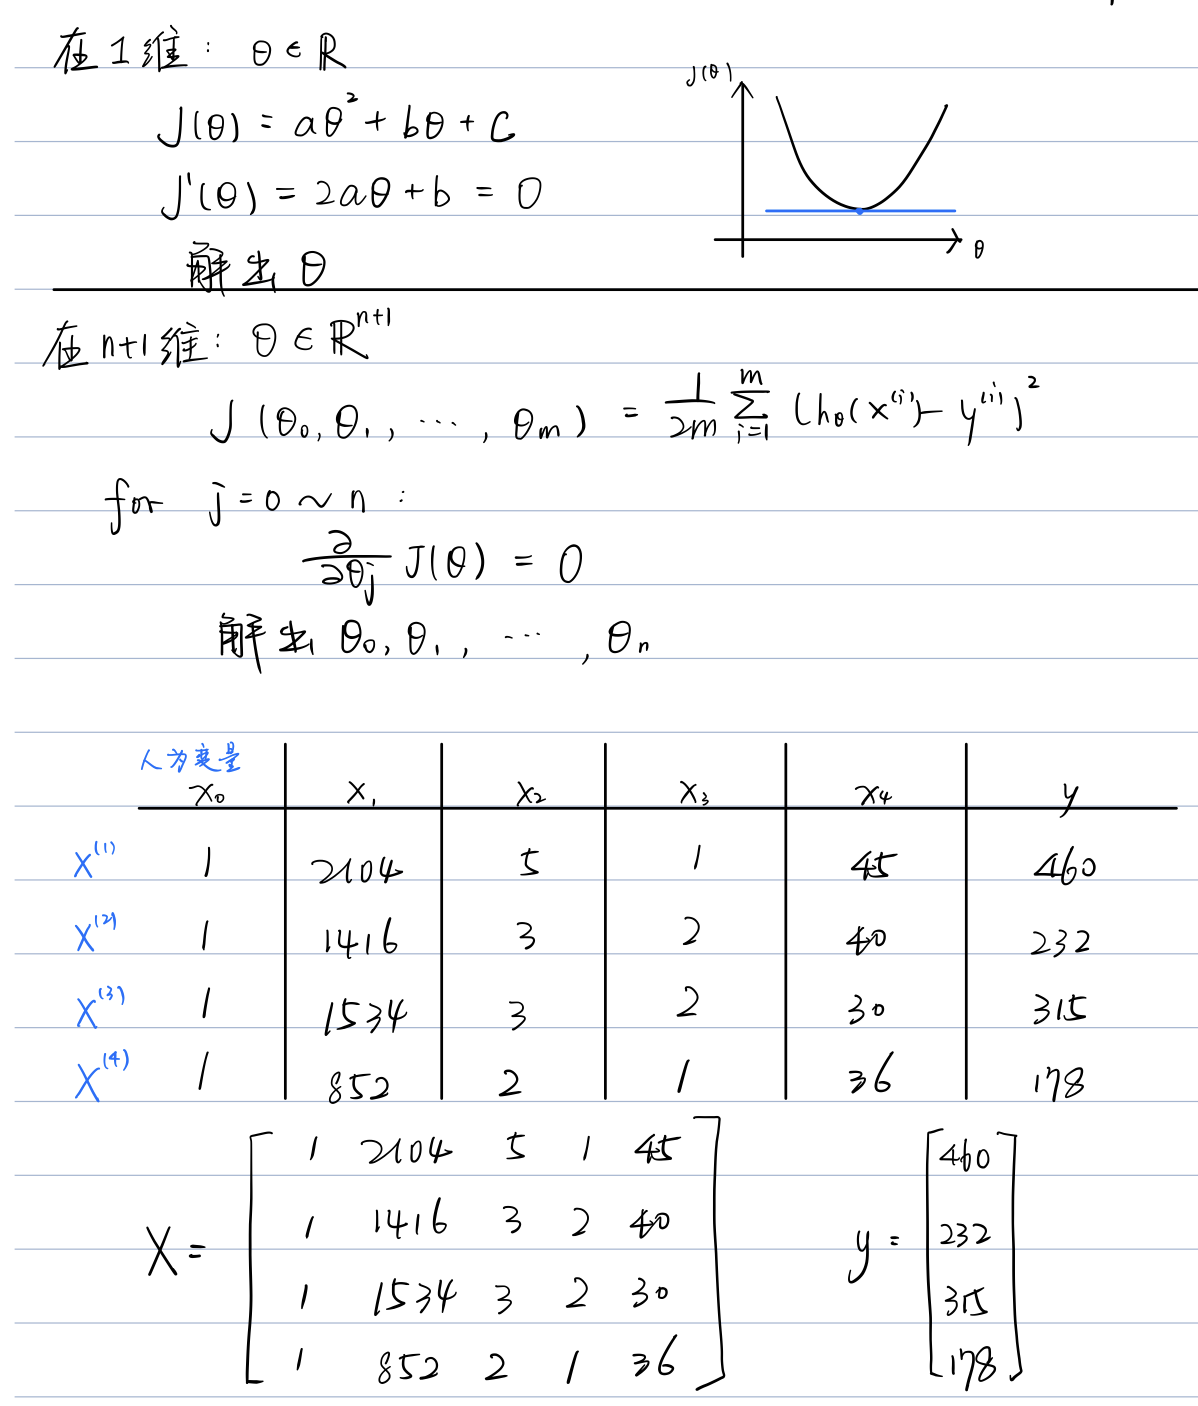 在1维: θ∈ℝ
J(θ) = aθ² + bθ + c
J'(θ) = 2aθ + b = 0
解出 θ
J(θ)
θ
在 n+1维: θ ∈ ℝⁿ⁺¹
J (θ₀, θ₁, ⋯, θₘ) = 1/2m ∑ᵢ₌₁ᵐ (hθ(x⁽ⁱ⁾) - y⁽ⁱ⁾)²
for j=0 ~ n :
∂/∂θⱼ J(θ) = 0
解出 θ₀, θ₁, ⋯, θₙ
人为变量
x₀ x₁ x₂ x₃ x₄ y
X⁽¹⁾ 1 2104 5 1 45 460
X⁽²⁾ 1 1416 3 2 40 232
X⁽³⁾ 1 1534 3 2 30 315
X⁽⁴⁾ 1 852 2 1 36 178
X = [1 2104 5 1 45
1 1416 3 2 40
1 1534 3 2 30
1 852 2 1 36]
y = [460
232
315
178]